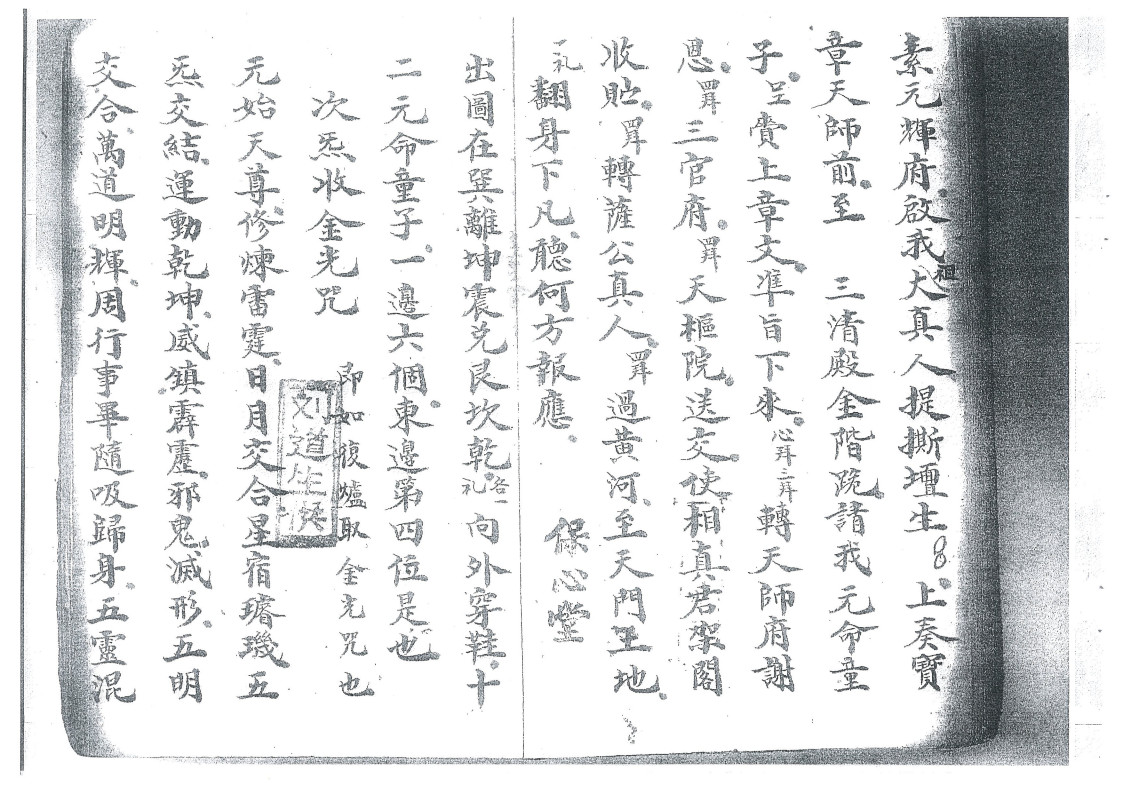 素元輝府、啟我祖大真人提撕壇生、上奏寶
章天師前、至 三清殿金階跪諸我元命童
子、呈賫上章文、準旨下來、心拜三拜轉天師府謝
恩、羿三官府、羿天樞院、送交使相真君架閣
收貯、羿轉薩公真人、羿過黃河、至天門至地、
一礼翻身下凡、聽何方報應、
保心堂
出圖在巽離坤震兑艮坎乾、各一礼向外穿鞋、十
二元命童子、一邉六個、東邉第四位是也
次炁收金光咒 即如複爐取金光咒也
元始天尊、修煉雷霆、日月交合、星宿璿璣、五
炁交結、運動乾坤、威鎮霹靂、邪鬼滅形、五明
交合、萬道明輝、周行事畢、隨吸歸身、五靈混